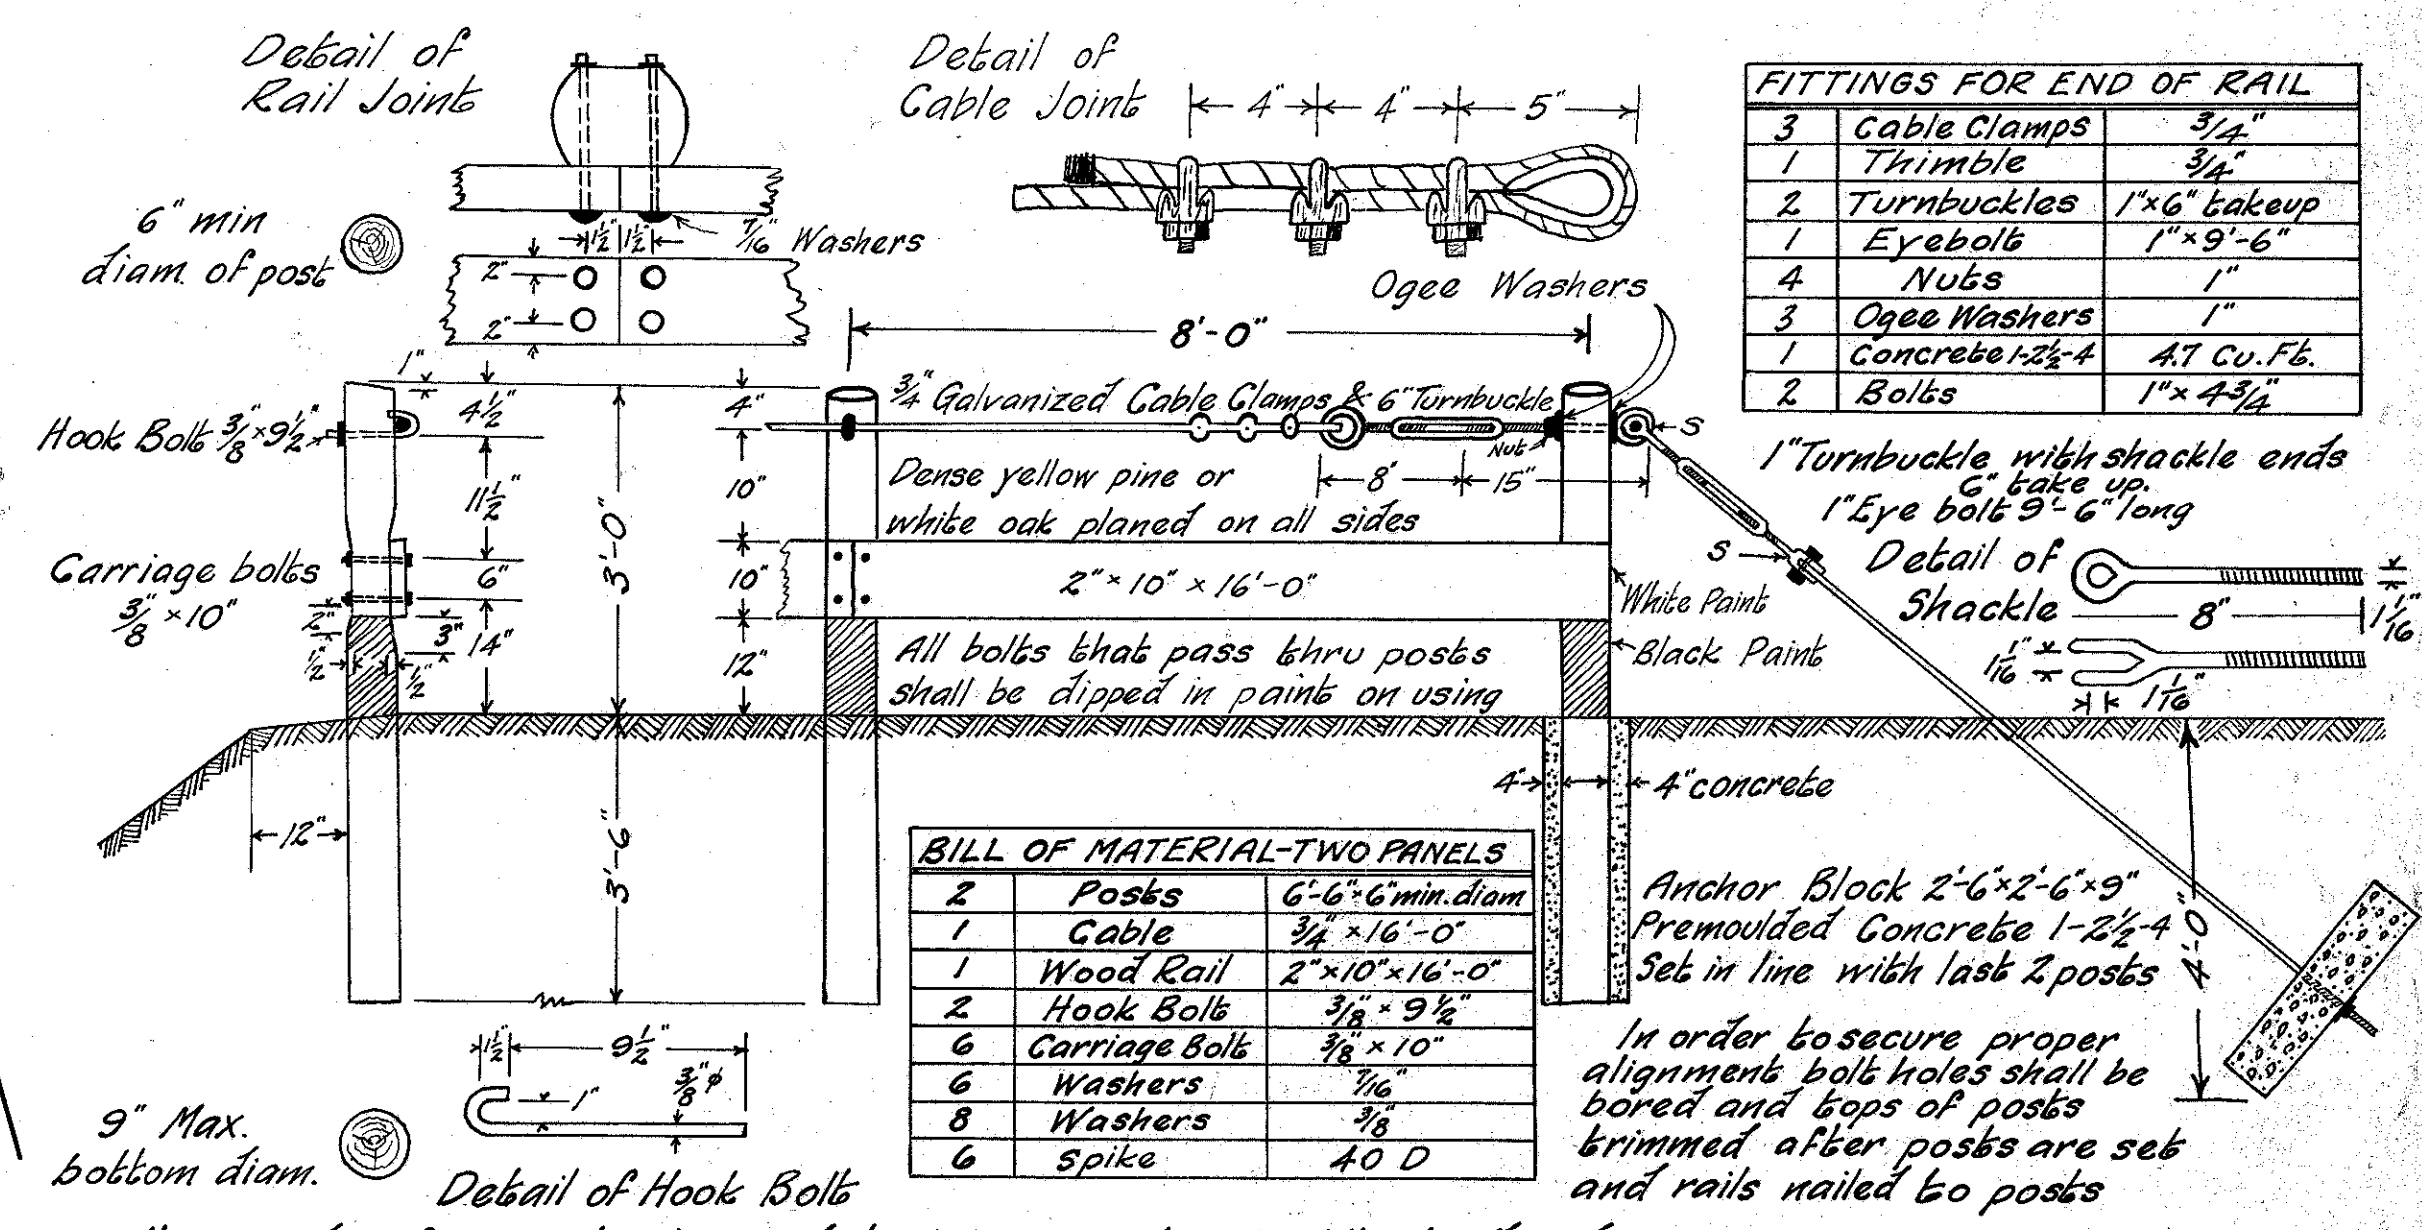 Detail of
Rail Joint
6" min
diam. of post
1½" 1½"
7/16" Washers
2"
2"
Detail of
Cable Joint
4" 4" 5"
Ogee Washers
FITTINGS FOR END OF RAIL
3 Cable Clamps 3/4"
1 Thimble 3/4"
2 Turnbuckles 1"×6" takeup
1 Eyebolt 1"×9'-6"
4 Nuts 1"
3 Ogee Washers 1"
1 Concrete 1-2½-4 4.7 Cu.Ft.
2 Bolts 1"×4¾"
8'-0"
1"
4½"
Hook Bolt 3/8"×9½"
11½"
Carriage bolts
3/8"×10"
6"
2"
3"
14"
½"
½"
3'-0"
4"
10"
10"
12"
3/4" Galvanized Cable Clamps & 6" Turnbuckle
Nut
S
8" 15"
Dense yellow pine or
white oak planed on all sides
2"×10"×16'-0"
All bolts that pass thru posts
shall be dipped in paint on using
White Paint
Black Paint
1" Turnbuckle with shackle ends
6" take up.
1" Eye bolt 9'-6" long
S
Detail of
Shackle
8"
1 1/16"
1 1/16"
1 1/16"
12"
3'-6"
4" 4" concrete
4'-0"
BILL OF MATERIAL-TWO PANELS
2 Posts 6'-6"×6" min. diam
1 Cable 3/4"×16'-0"
1 Wood Rail 2"×10"×16'-0"
2 Hook Bolt 3/8"×9½"
6 Carriage Bolt 3/8"×10"
6 Washers 7/16"
8 Washers 3/8"
6 Spike 40 D
Anchor Block 2'-6"×2'-6"×9"
Premoulded Concrete 1-2½-4
Set in line with last 2 posts
In order to secure proper
alignment bolt holes shall be
bored and tops of posts
trimmed after posts are set
and rails nailed to posts
1½" 9½"
1"
3/8"φ
Detail of Hook Bolt
9" Max.
bottom diam.